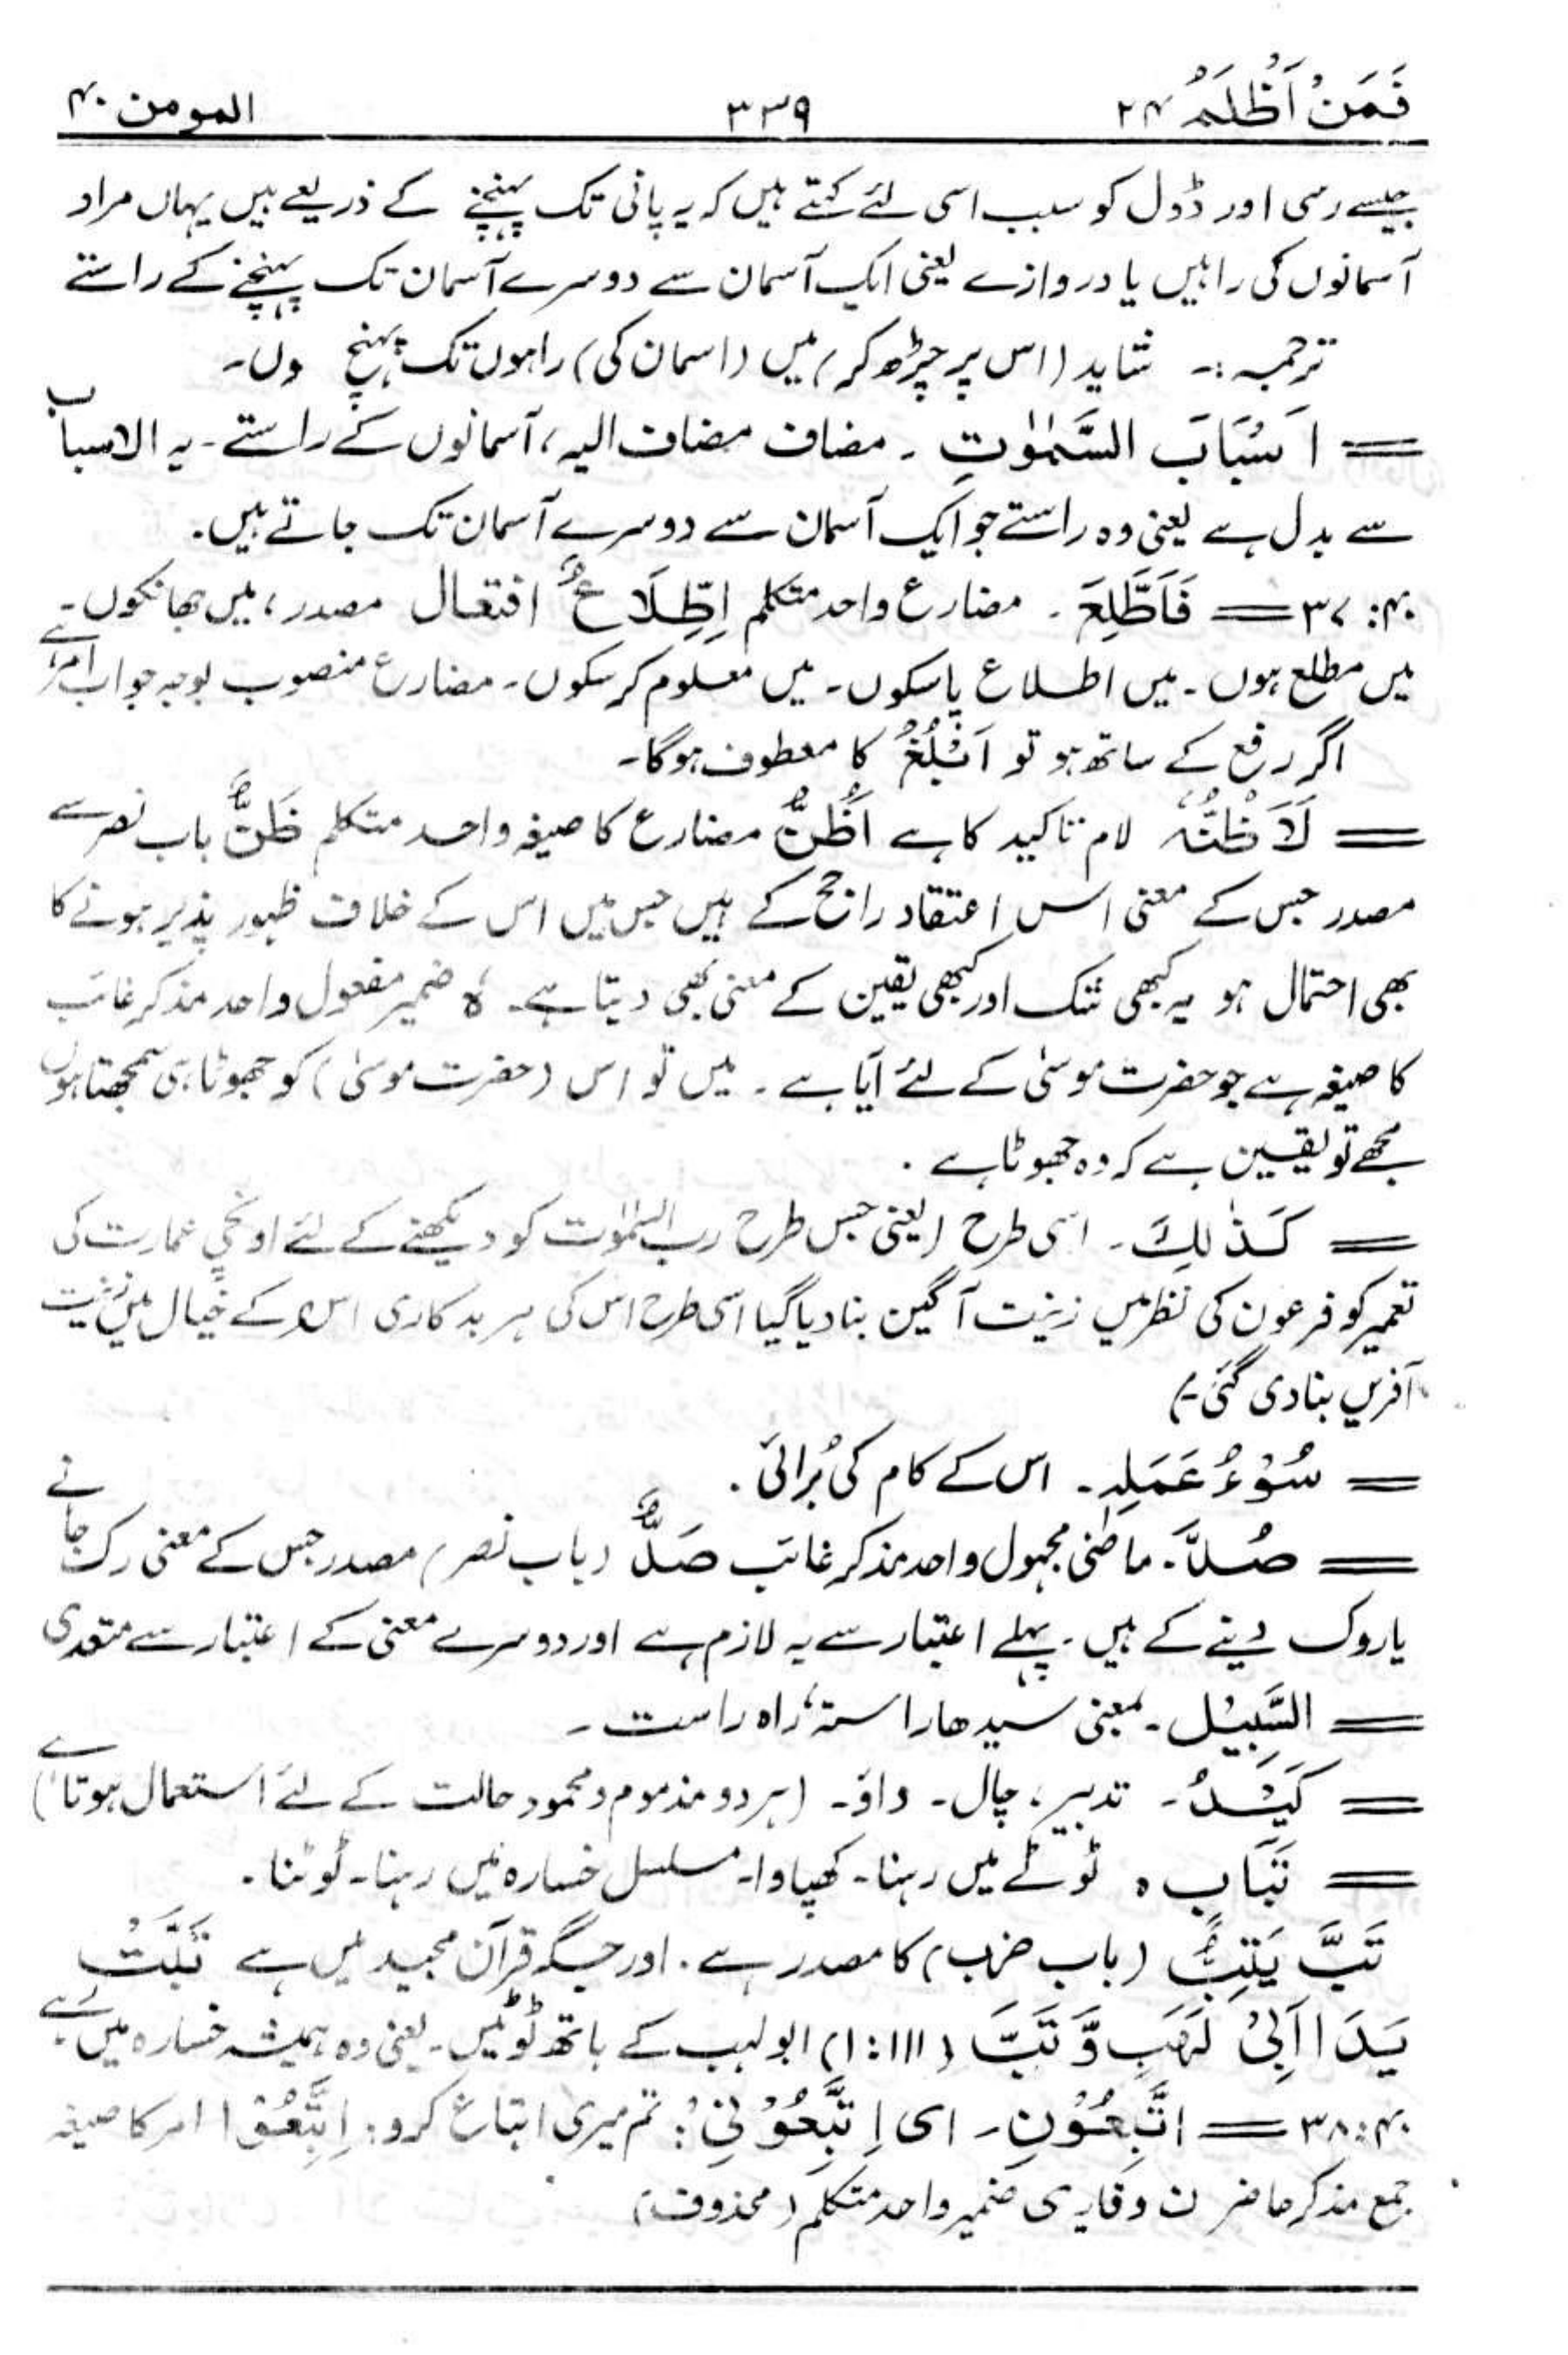 فَمَنْ اَظْلَمُ ۲۴ ۳۳۹ المومن ۴۰
جیسے رسی اور ڈول کو سبب اسی لئے کہتے ہیں کہ یہ پانی تک پہنچنے کے ذریعے ہیں یہاں مراد
آسمانوں کی راہیں یا دروازے یعنی ایک آسمان سے دوسرے آسمان تک پہنچنے کے راستے
ترجمہ :۔ شاید (اس پر چڑھ کر) میں (اسمان کی) راہوں تک پہنچ وں۔
= اَسْبَابَ السَّمٰوٰتِ ۔ مضاف مضاف الیہ، آسمانوں کے راستے۔ یہ الاسباب
سے بدل ہے یعنی وہ راستے جو ایک آسمان سے دوسرے آسمان تک جاتے ہیں.
۴۰: ۳۷ = فَاَطَّلِعَ ۔ مضارع واحد متکلم اِطِّلَاعٌ افتعال مصدر، میں جھانکوں۔
میں مطلع ہوں۔ میں اطلاع پاسکوں۔ میں معلوم کرسکوں۔ مضارع منصوب بوجہ جواب امر ہے
اگر رفع کے ساتھ ہو تو اَبْلُغُ کا معطوف ہوگا۔
= لَاَظُنُّہٗ لام تاکید کا ہے اَظُنُّ مضارع کا صیغہ واحد متکلم ظَنٌّ باب نصر سے
مصدر جس کے معنی اس اعتقاد راجح کے ہیں جس میں اس کے خلاف ظہور پذیر ہونے کا
بھی احتمال ہو یہ کبھی شک اور کبھی یقین کے معنی بھی دیتا ہے۔ ہٗ ضمیر مفعول واحد مذکر غائب
کا صیغہ ہے جو حضرت موسٰی کے لئے آیا ہے ۔ میں تو اس (حضرت موسٰی) کو جھوٹا ہی سمجھتا ہوں
مجھے تو یقین ہے کہ وہ جھوٹا ہے .
= کَذٰلِکَ ۔ اسی طرح (یعنی جس طرح رب السمٰوٰت کو دیکھنے کے لئے اونچی عمارت کی
تعمیر کو فرعون کی نظر میں زینت آگین بنا دیا گیا اسی طرح اس کی ہر بدکاری اس کے خیال میں زینت
آفریں بنادی گئی۔)
= سُوْٓءُ عَمَلِہٖ ۔ اس کے کام کی بُرائی .
= صُدَّ ۔ ماضی مجہول واحد مذکر غائب صَدٌّ (باب نصر) مصدر جس کے معنی رک جانے
یا روک دینے کے ہیں ۔ پہلے اعتبار سے یہ لازم ہے اور دوسرے معنی کے اعتبار سے متعدی
= السَّبِیْل ۔ بمعنی سیدھا راستہ، راہ راست ۔
= کَیْدُ ۔ تدبیر، چال ۔ داؤ ۔ (ہر دو مذموم و محمود حالت کے لئے استعمال ہوتا ہے)
= تَبَابٍ ہ ٹوٹے میں رہنا ۔ کھپاوا۔ مسلسل خسارہ میں رہنا ۔ ٹوٹنا .
تَبَّ یَتِبُّ (باب ضرب) کا مصدر ہے . اور جگہ قرآن مجید میں ہے تَبَّتْ
یَدَا اَبِیْ لَھَبٍ وَّ تَبَّ (۱۱۱ : ۱) ابو لہب کے ہاتھ ٹوٹیں ۔ یعنی وہ ہمیشہ خسارہ میں رہے
۴۰: ۳۸ = اتَّبِعُوْنِ ۔ ای اِتَّبِعُوْنِیْ : تم میری اتباع کرو : اِتَّبِعُوْا امر کا صیغہ
جمع مذکر حاضر ن وقایہ ی ضمیر واحد متکلم (محذوف)